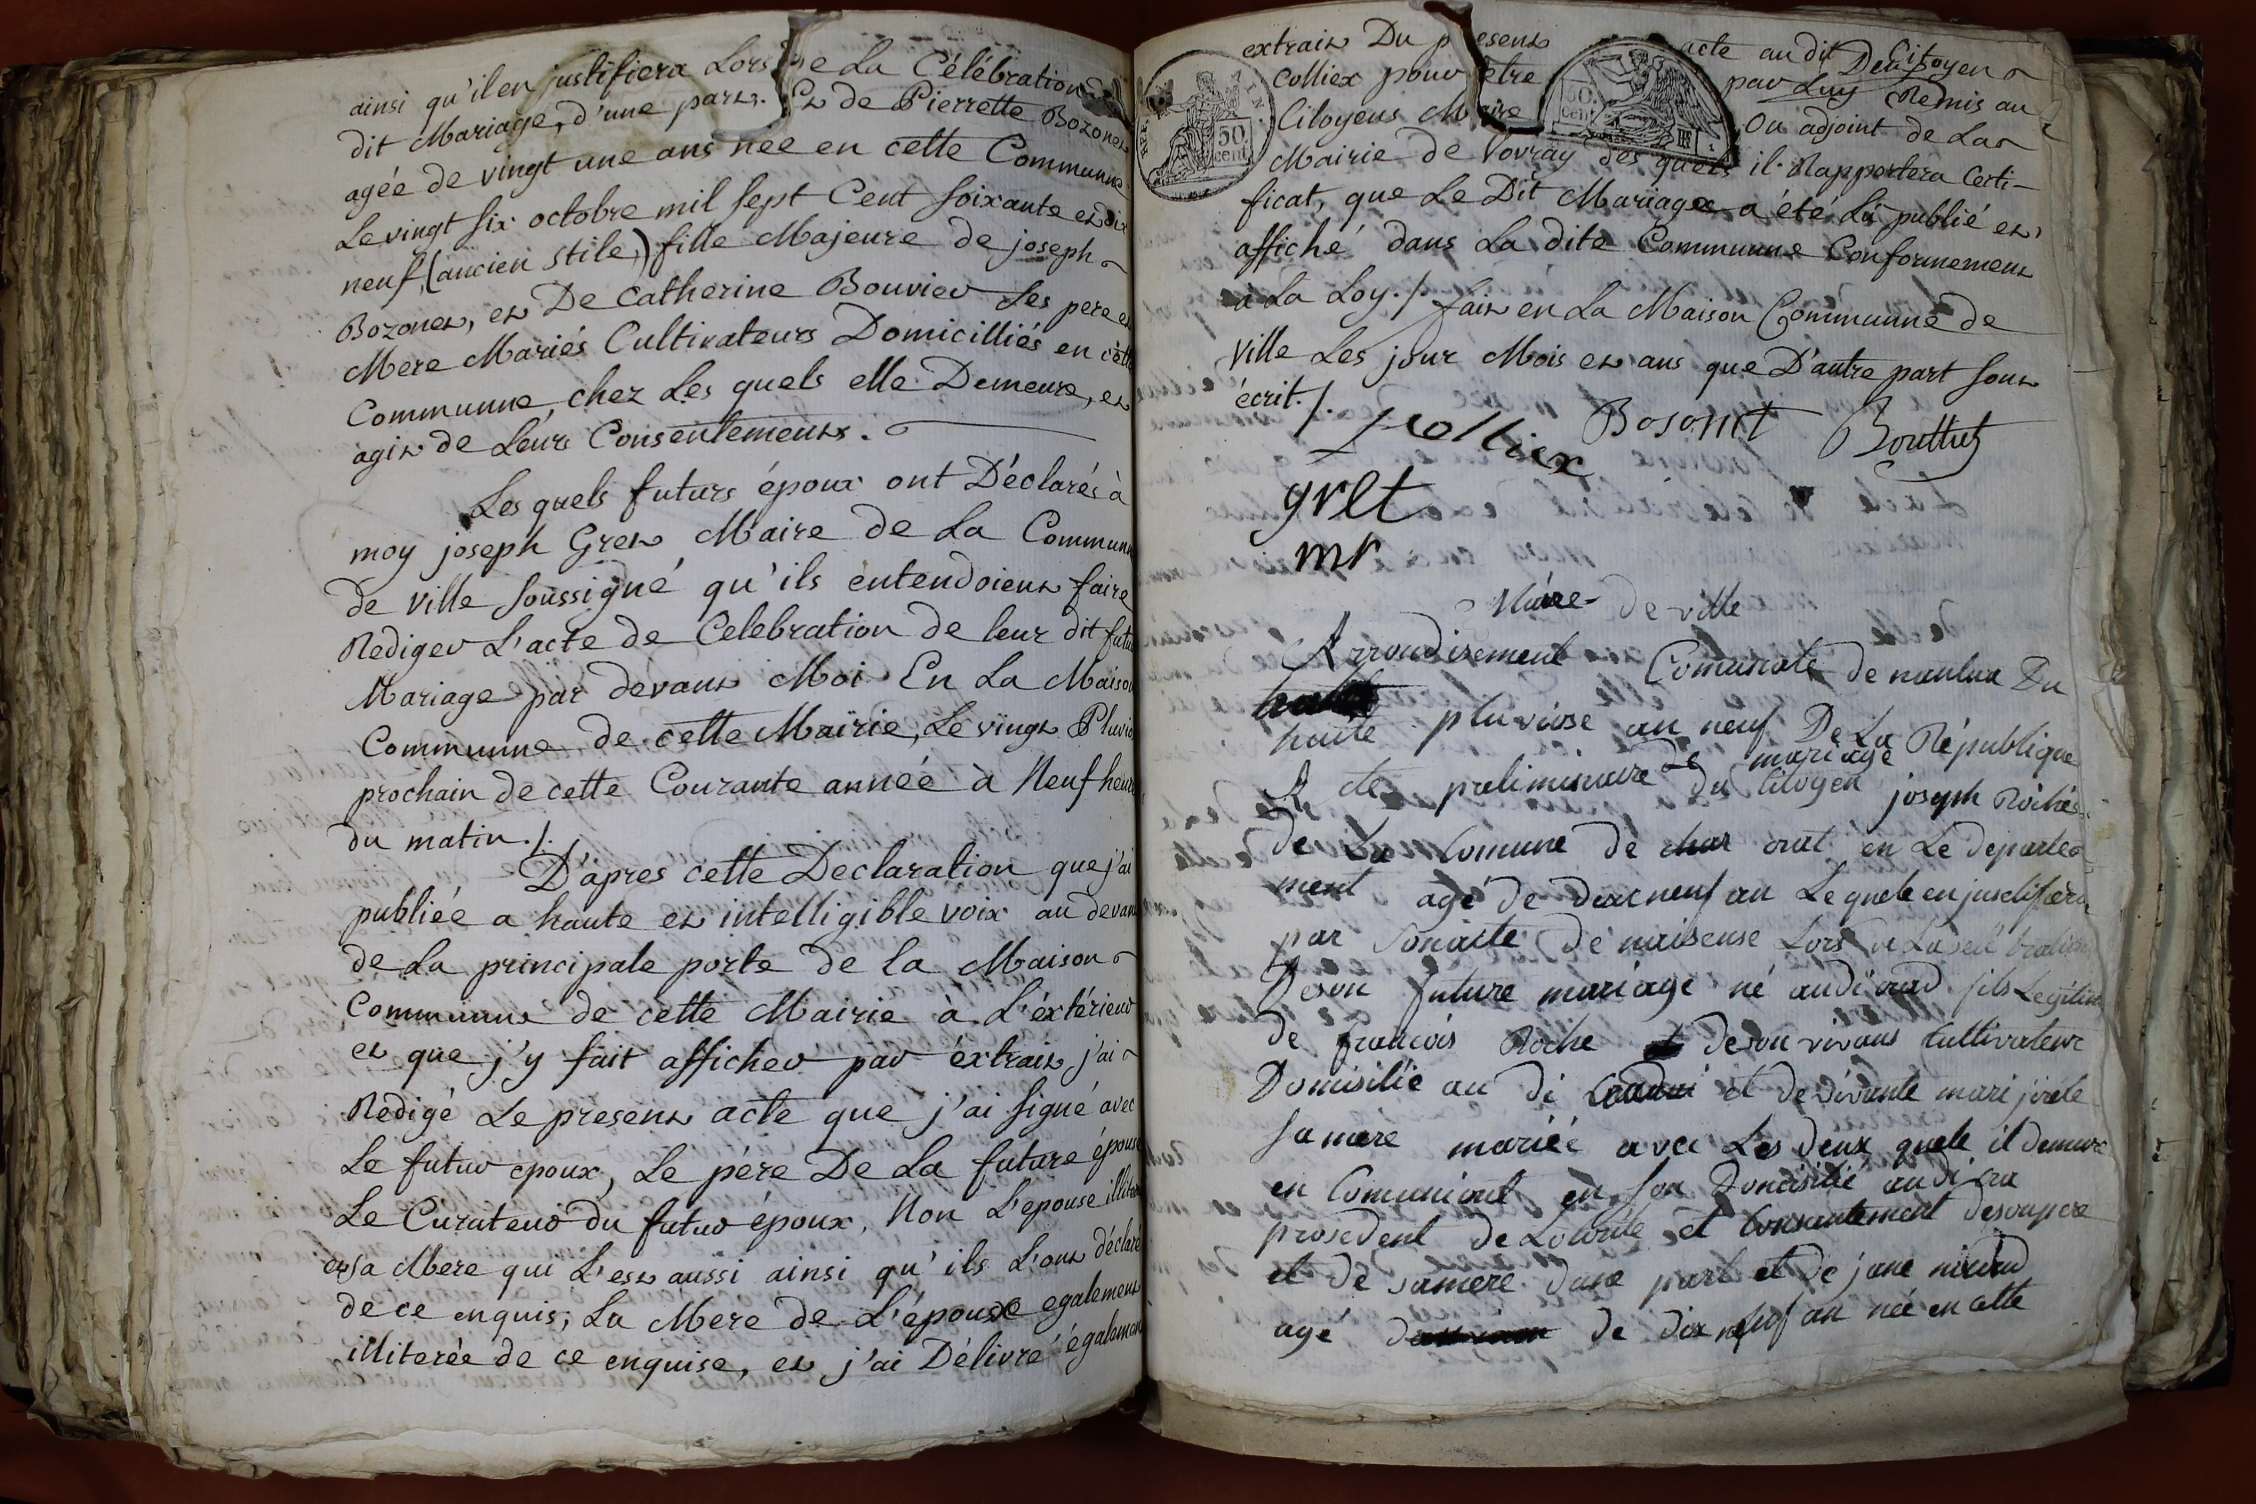 ainsi qu'il en justifiera Lors de La Célébration
dit Mariage, d'une part. Et de Pierrette Bozonet
agée de vingt une ans née en cette Communne
Le vingt six octobre mil sept Cent soixante et dix
neuf, (ancien stile,) fille Majeure de joseph
Bozonet, et De Catherine Bouvier Ses pere et
Mere Mariés Cultivateurs Domicilliés en cette
Communne, chez Les quels elle Demeure, et
agit de Leur Consentement.
Les quels futurs époux ont Déclarés à
moy joseph Gret Maire de La Communne
de ville soussigné qu'ils entendoient faire
Rediger L'acte de Celebration de leur dit futur
Mariage par devant Moi En La Maison
Communne de cette Mairie, Le vingt Pluvio
prochain de cette Courante année à Neuf heures
du matin./.
D'apres cette Declaration que j'ai
publiée a haute et intelligible voix au devant
de La principale porte de la Maison
Communne de cette Mairie à L'éxtérieur
et que j'y fait afficher par éxtrait j'ai
Redigé Le present acte que j'ai signé avec
Le futur epoux, Le père De La future épouse
Le Curateur du futur époux, Non L'epouse
et sa Mere qui L'est aussi ainsi qu'ils L'ont déclaré
de ce enquis; La Mere de L'épouse egalement
illiterée de ce enquise, et j'ai Délivré également
extrait Du present acte au dit Citoyen
Colliex pour être par Luy Remis au
Citoyens Maire Ou adjoint de La
Mairie de Vovray des quels il Rapportera Certi-
ficat, que Le Dit Mariage a été Lü publié et
affiché dans La dite Communne Conformement
a La Loy./. fait en La Maison Communne de
Ville Les jour Mois et ans que D'autre part sous
écrit./.
Colliex Bosonet
gret
mr
Maire de ville
Arrondisement Comunate de nantua Du
huite pluviose an neuf De La République
Acte preliminaire De mariage du Citoyen joseph Roche
de La Comune de en Le departe
ment agé de dixneuf an Le quele en justifiera
par sonacte de naisense Lors de La célébration
De son future mariage né audi fils Legitime
de francois Roche de son vivans Cultivateur
Domisilié au di et de vivante mari
sa mere mariée avec Les deux quele il demure
en Comunient en son Domisilié audi
prosedent de Lotorite et Consentement desonpere
et de samere dune part et de jane
agé de dix neuf an née en cette